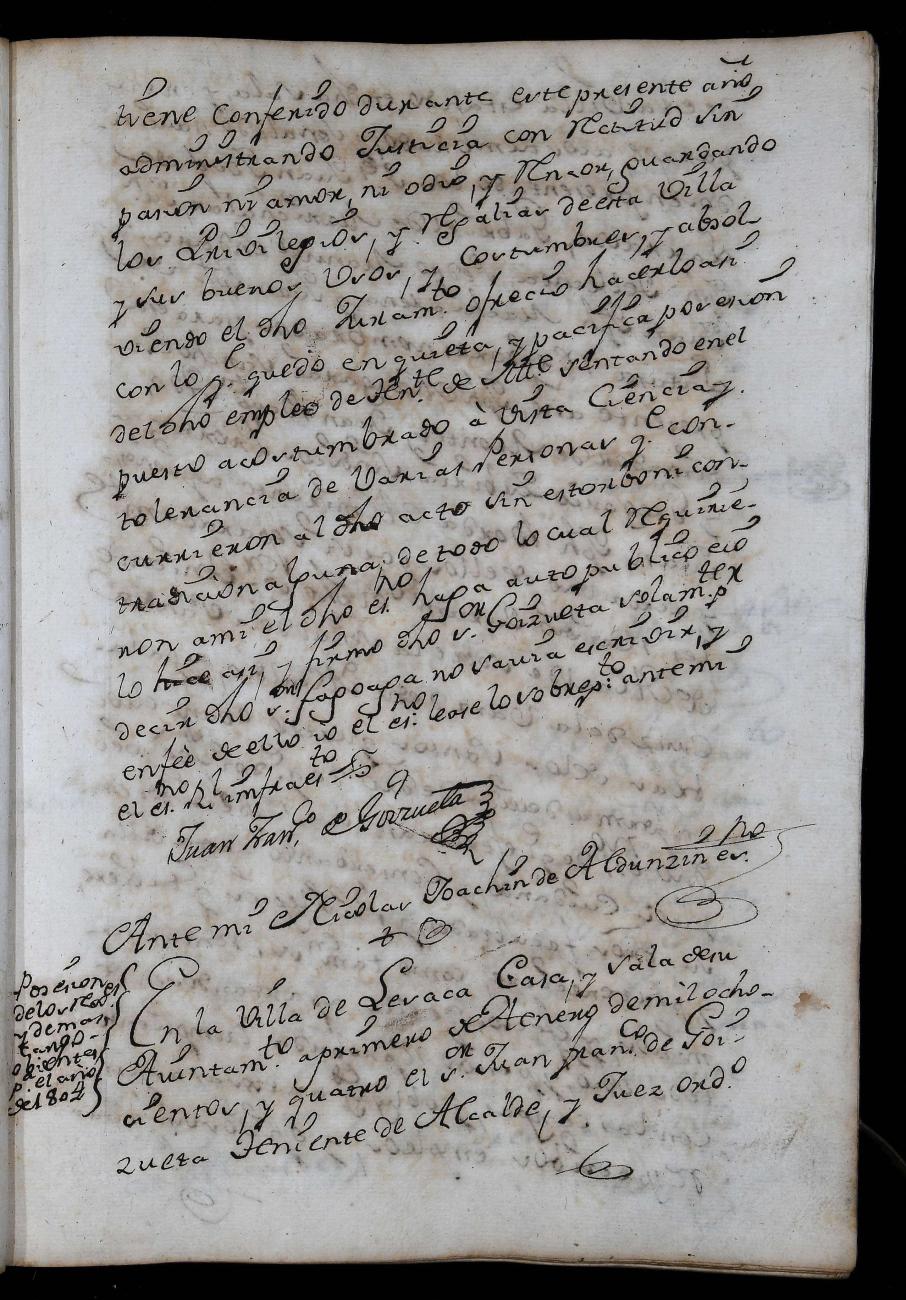 tiene Conferido durante este presente año
administrando Justicia con Rectitud sin
pasion ni amor, ni odio, y Rencor, guardando
los Privilegios, y Regalias de esta Villa
y sus buenos Usos, y Costumbres, y absol-
viendo el dho Juram.to ofrecio hacerlo asi
con lo q.e quedo en quieta, y pacifica posesion
del dho empleo de Ten.te de Alc.e sentando en el
puesto acostumbrado à Vista Ciencia y
tolerancia de Varias Personas q.e con-
currieron al dho acto sin estorbo ni con-
tradicion alguna; de todo lo cual Requirie-
ron a mi el dho es.no haga auto publico e io
lo hice asi, y firmo dho s.or Goizueta solam.te p.r
decir dho s.or no savia escrivir, y
en fèe de ello io el es.no lease lo sobrep.to ante mi
el es.no
Juan Fran.co de Goizueta
Ante mi Nicolas Joachin de Aldunzin es.no
Posesion
de los
y demas
tango-
vientes
p.a el año
de 1804
En la Villa de Lesaca Casa, y Sala de su
Aiuntam.to a primero de Henero de mil ocho-
cientos, y quatro el s.or Juan Fran.co de Goi-
zueta Teniente de Alcalde, y Juez ord.o